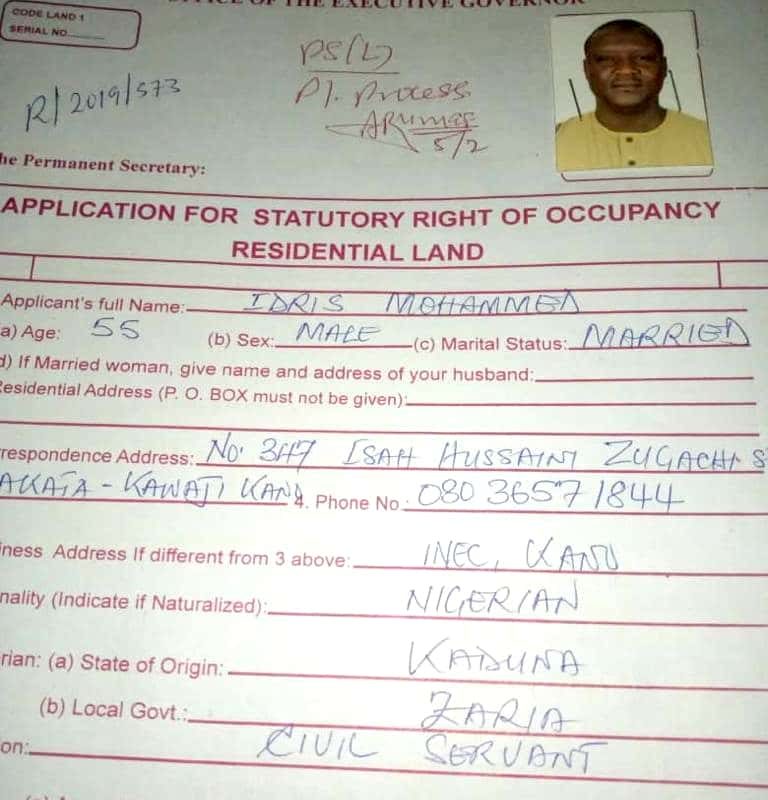 OFFICE OF THE EXECUTIVE GOVERNOR
CODE LAND 1
SERIAL NO.
R/2019/573
PS(L)
Pl. Process
5/2
he Permanent Secretary:
APPLICATION FOR STATUTORY RIGHT OF OCCUPANCY
RESIDENTIAL LAND
Applicant's full Name: IDRIS MOHAMMED
a) Age: 55 (b) Sex: MALE (c) Marital Status: MARRIED
d) If Married woman, give name and address of your husband:
Residential Address (P. O. BOX must not be given):
rrespondence Address: No. 347 ISAH HUSSAINI ZUGACHI S
AKATA - KAWAJI KANO 4. Phone No: 080 3657 1844
iness Address If different from 3 above: INEC, KANO
nality (Indicate if Naturalized): NIGERIAN
rian: (a) State of Origin: KADUNA
(b) Local Govt.: ZARIA
on: CIVIL SERVANT